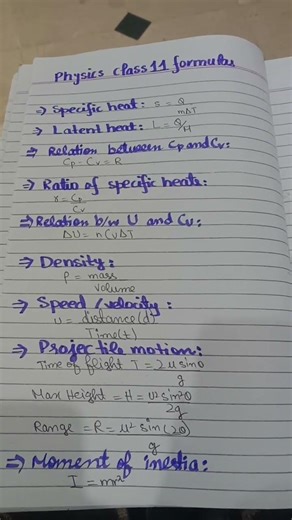 Physics class 11 formulas
⇒ Specific heat: S = Q
mΔT
⇒ Latent heat: L = Q/M
⇒ Relation between Cp and Cv:
Cp - Cv = R
⇒ Ratio of specific heats:
γ = Cp
Cv
⇒ Relation b/w U and Cv:
ΔU = nCvΔT
⇒ Density:
ρ = mass
volume
⇒ Speed / velocity:
u = distance(d)
Time(t)
⇒ Projectile motion:
Time of flight T = 2u sinθ
g
Max Height = H = u² sin²θ
2g
Range = R = u² sin(2θ)
g
⇒ Moment of inestia:
I = mr²